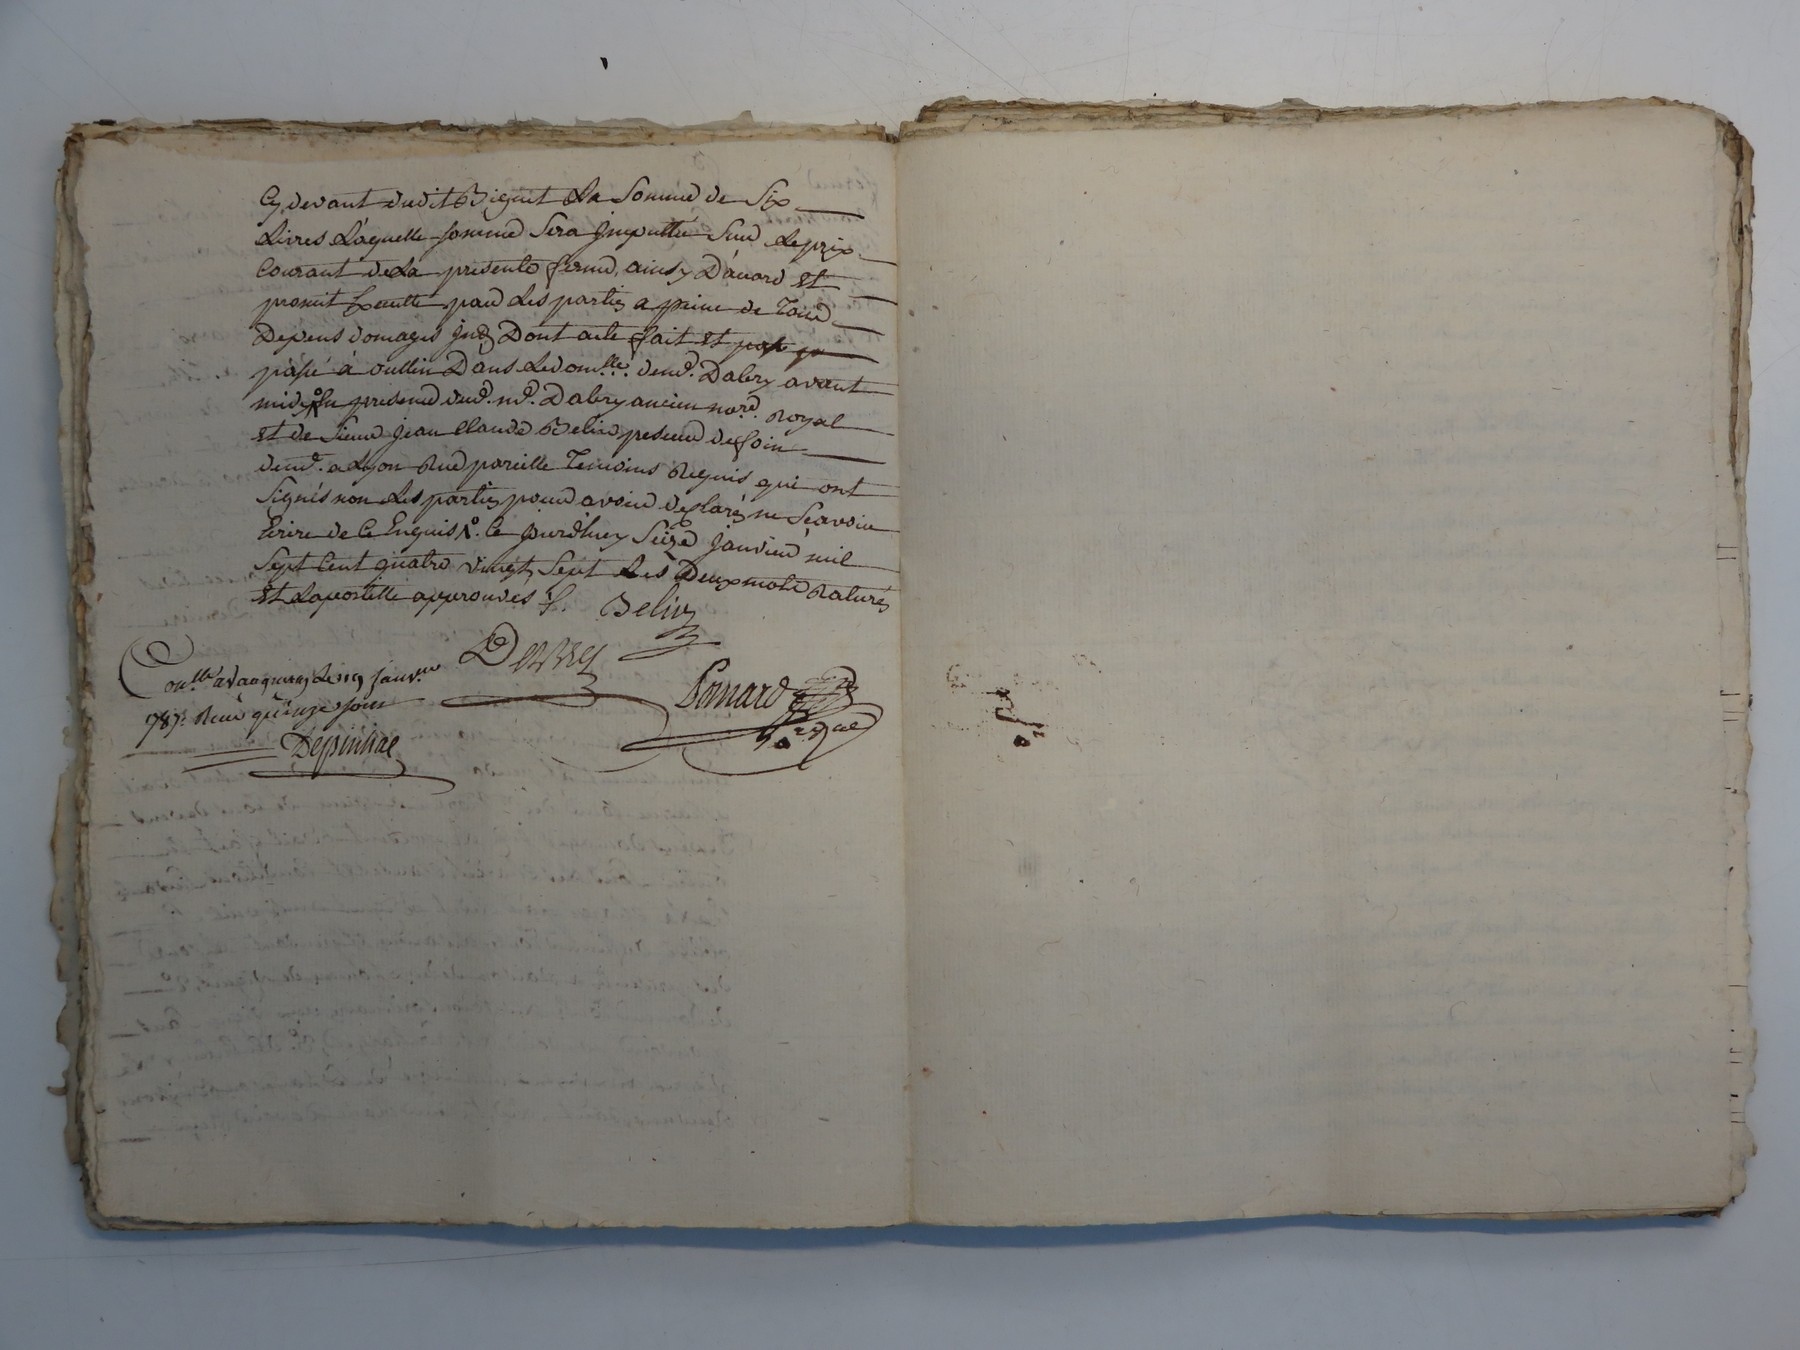 Cy devant dudit Biguet La Somme de Six
Livres Laquelle somme Sera Imputtée Sur Le prix
Courant de La presente ferme, ainsy D'acord et
promit par Les parties a peine de Tous
Depens domages Dont acte fait et
passé à oullin Dans Le dom.lle Dud. m.d Dalery avant
midy En presence dud. m.d Dalery ancien no.re Royal
et de Sieur Jean Claude Belin peseur de foin
dem.t a Lyon Rue pareille Temoins Requis qui ont
Signés non Les parties pour avoir declarés ne Scavoir
Ecrire de Ce Enquis Ce jourdhuy Seize Janvier mil
Sept Cent quatre vingt Sept Les Deux mots Raturés
et Lapostille approuvés
Belin
Con.llé a Vaugneray Le 19 Janv.er
787. Reçu quinze sous
Ponnard